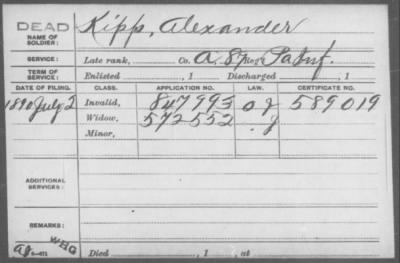 DEAD
NAME OF SOLDIER: Kipp, Alexander
SERVICE: Late rank, Co. A. 87 Reg Pa Inf.
TERM OF SERVICE: Enlisted , 1 Discharged , 1
DATE OF FILING. CLASS. APPLICATION NO. LAW. CERTIFICATE NO.
1890 July 2 Invalid, 847993 o J 589019
Widow, 572552 . J
Minor,
ADDITIONAL SERVICES:
REMARKS:
WHG
Died , 1 , at